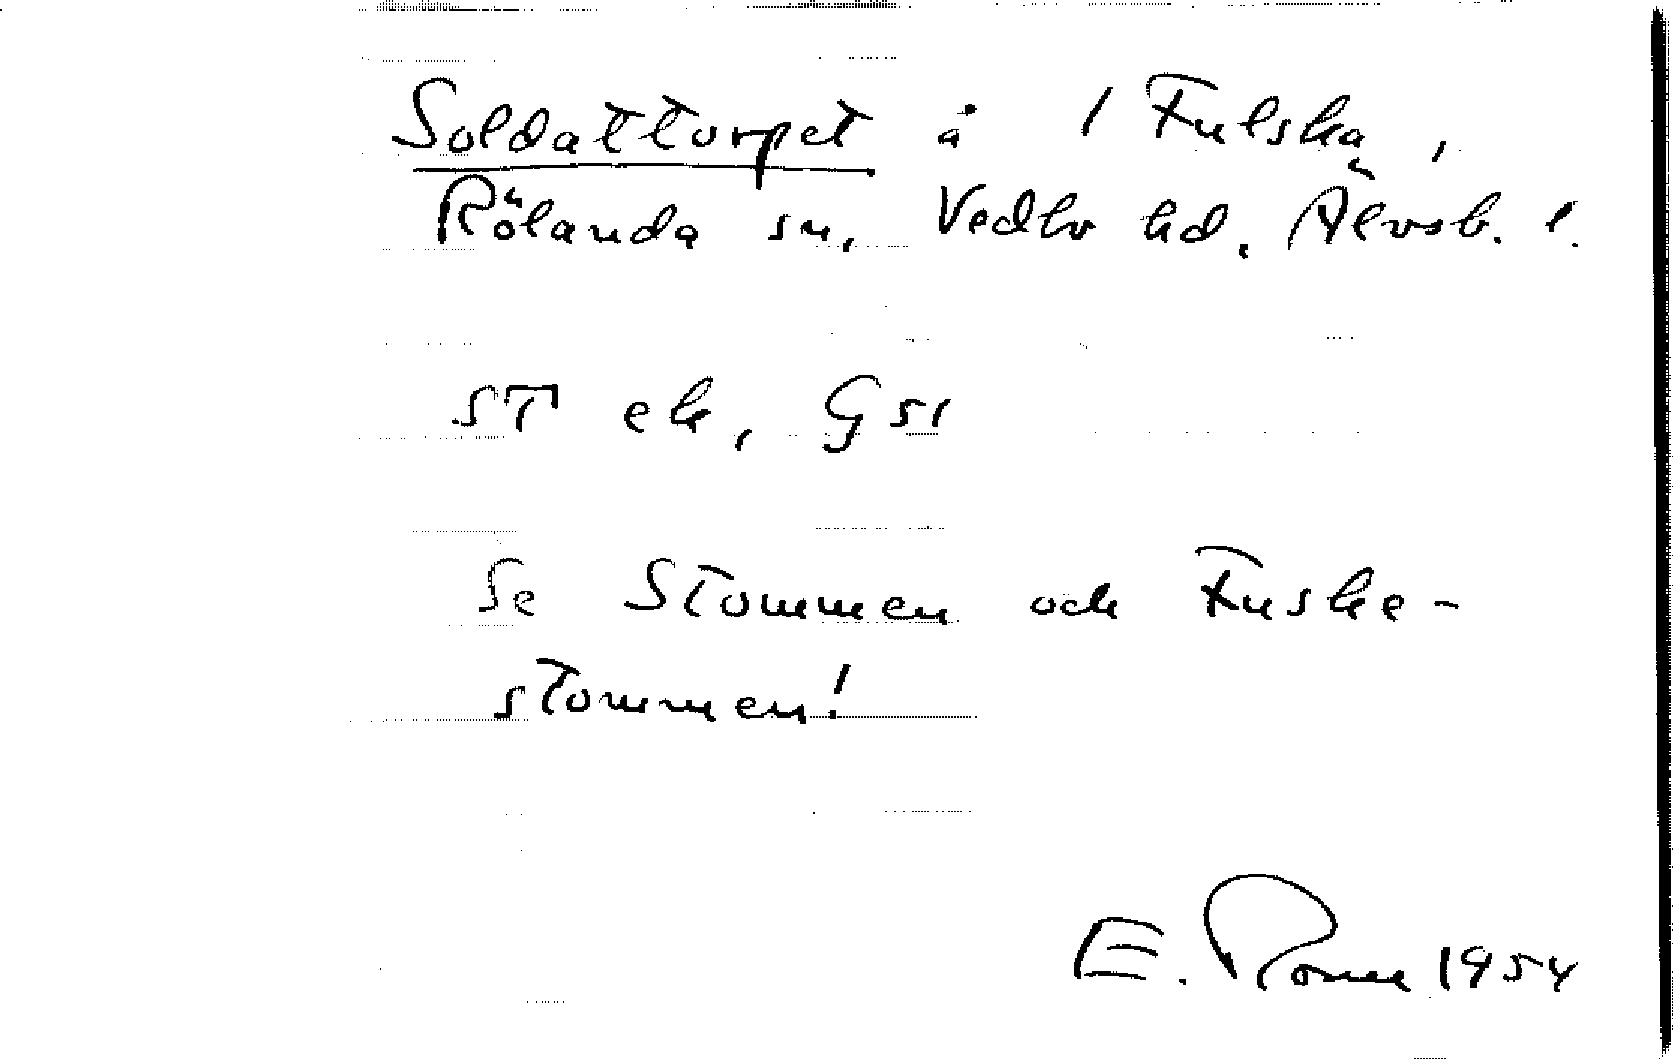 Soldattorpet å 1 Fulska,
Rölanda sn, Vedbo hd, Älvsb. l.
ST ek, G51
Se Stommen och Fuske-
stommen!
E. 1954